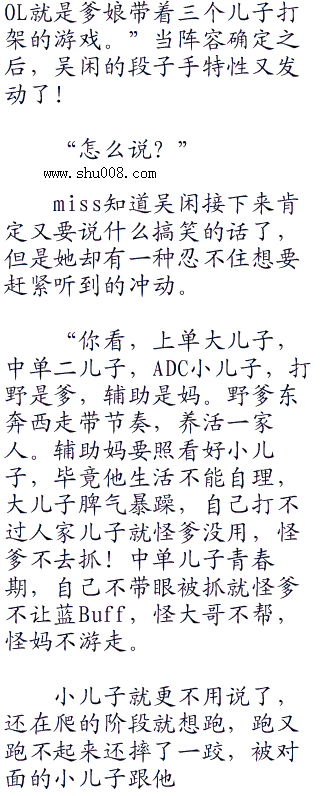 OL就是爹娘带着三个儿子打
架的游戏。”当阵容确定之
后，吴闲的段子手特性又发
动了！
“怎么说？”
www.shu008.com
miss知道吴闲接下来肯
定又要说什么搞笑的话了，
但是她却有一种忍不住想要
赶紧听到的冲动。
“你看，上单大儿子，
中单二儿子，ADC小儿子，打
野是爹，辅助是妈。野爹东
奔西走带节奏，养活一家
人。辅助妈要照看好小儿
子，毕竟他生活不能自理，
大儿子脾气暴躁，自己打不
过人家儿子就怪爹没用，怪
爹不去抓！中单儿子青春
期，自己不带眼被抓就怪爹
不让蓝Buff，怪大哥不帮，
怪妈不游走。
小儿子就更不用说了，
还在爬的阶段就想跑，跑又
跑不起来还摔了一跤，被对
面的小儿子跟他